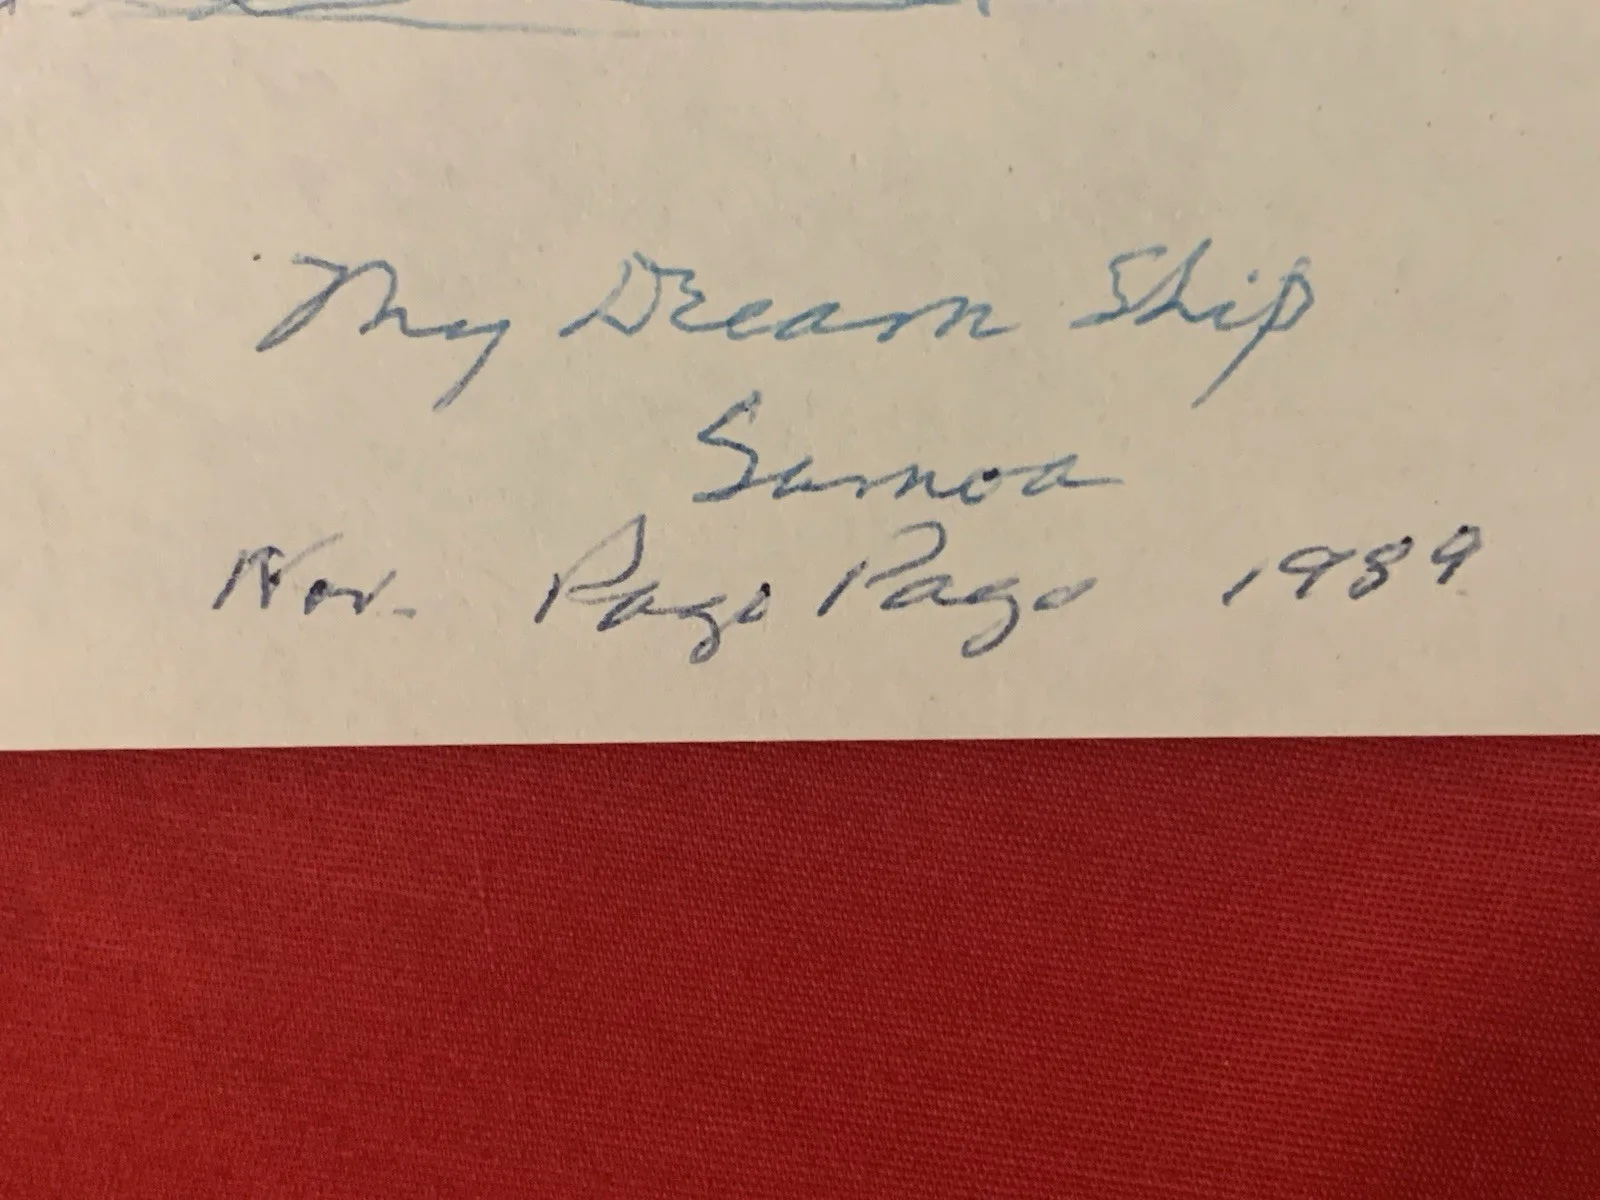 My Dream Ship
Samoa
Nov. Pago Pago 1989